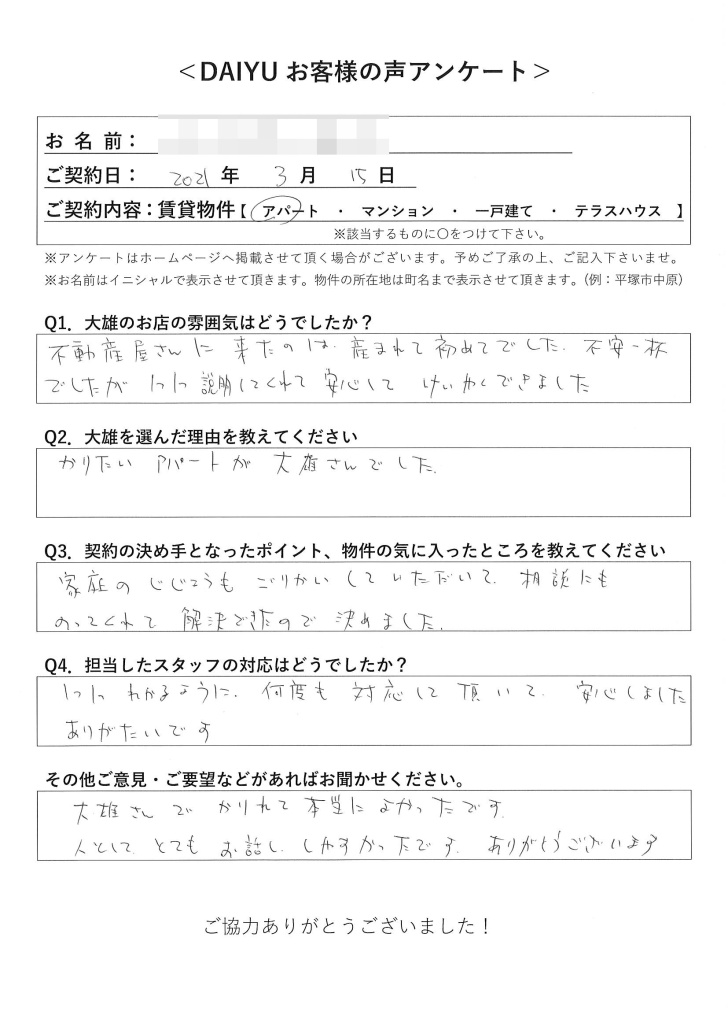 ＜DAIYU お客様の声アンケート＞
お 名 前：
ご契約日： 2021 年 3 月 15 日
ご契約内容：賃貸物件【 アパート ・ マンション ・ 一戸建て ・ テラスハウス 】
※該当するものに〇をつけて下さい。
※アンケートはホームページへ掲載させて頂く場合がございます。予めご了承の上、ご記入下さいませ。
※お名前はイニシャルで表示させて頂きます。物件の所在地は町名まで表示させて頂きます。（例：平塚市中原）
Q1．大雄のお店の雰囲気はどうでしたか？
不動産屋さんに来たのは、産まれて初めてでした。不安一杯
でしたが 1つ1つ説明してくれて 安心して けいやくできました
Q2．大雄を選んだ理由を教えてください
かりたい アパートが 大雄さんでした。
Q3．契約の決め手となったポイント、物件の気に入ったところを教えてください
家庭の じじょうも ごりかい していただいて、相談にも
のってくれて 解決できたので 決めました。
Q4．担当したスタッフの対応はどうでしたか？
1つ1つ わかるように、何度も 対応して 頂いて、安心しました
ありがたいです
その他ご意見・ご要望などがあればお聞かせください。
大雄さんで かりれて 本当に よかったです。
人として、とても お話し しやすかったです。ありがとうございます
ご協力ありがとうございました！